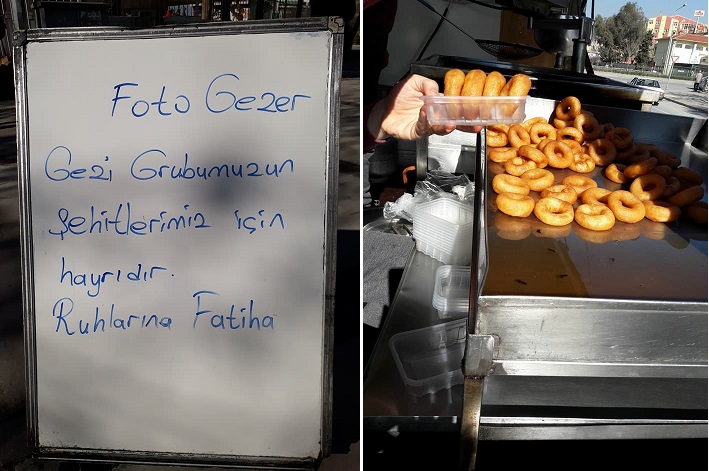 Foto Gezer
Gezi Grubumuzun
Şehitlerimiz için
hayrıdır.
Ruhlarına Fatiha